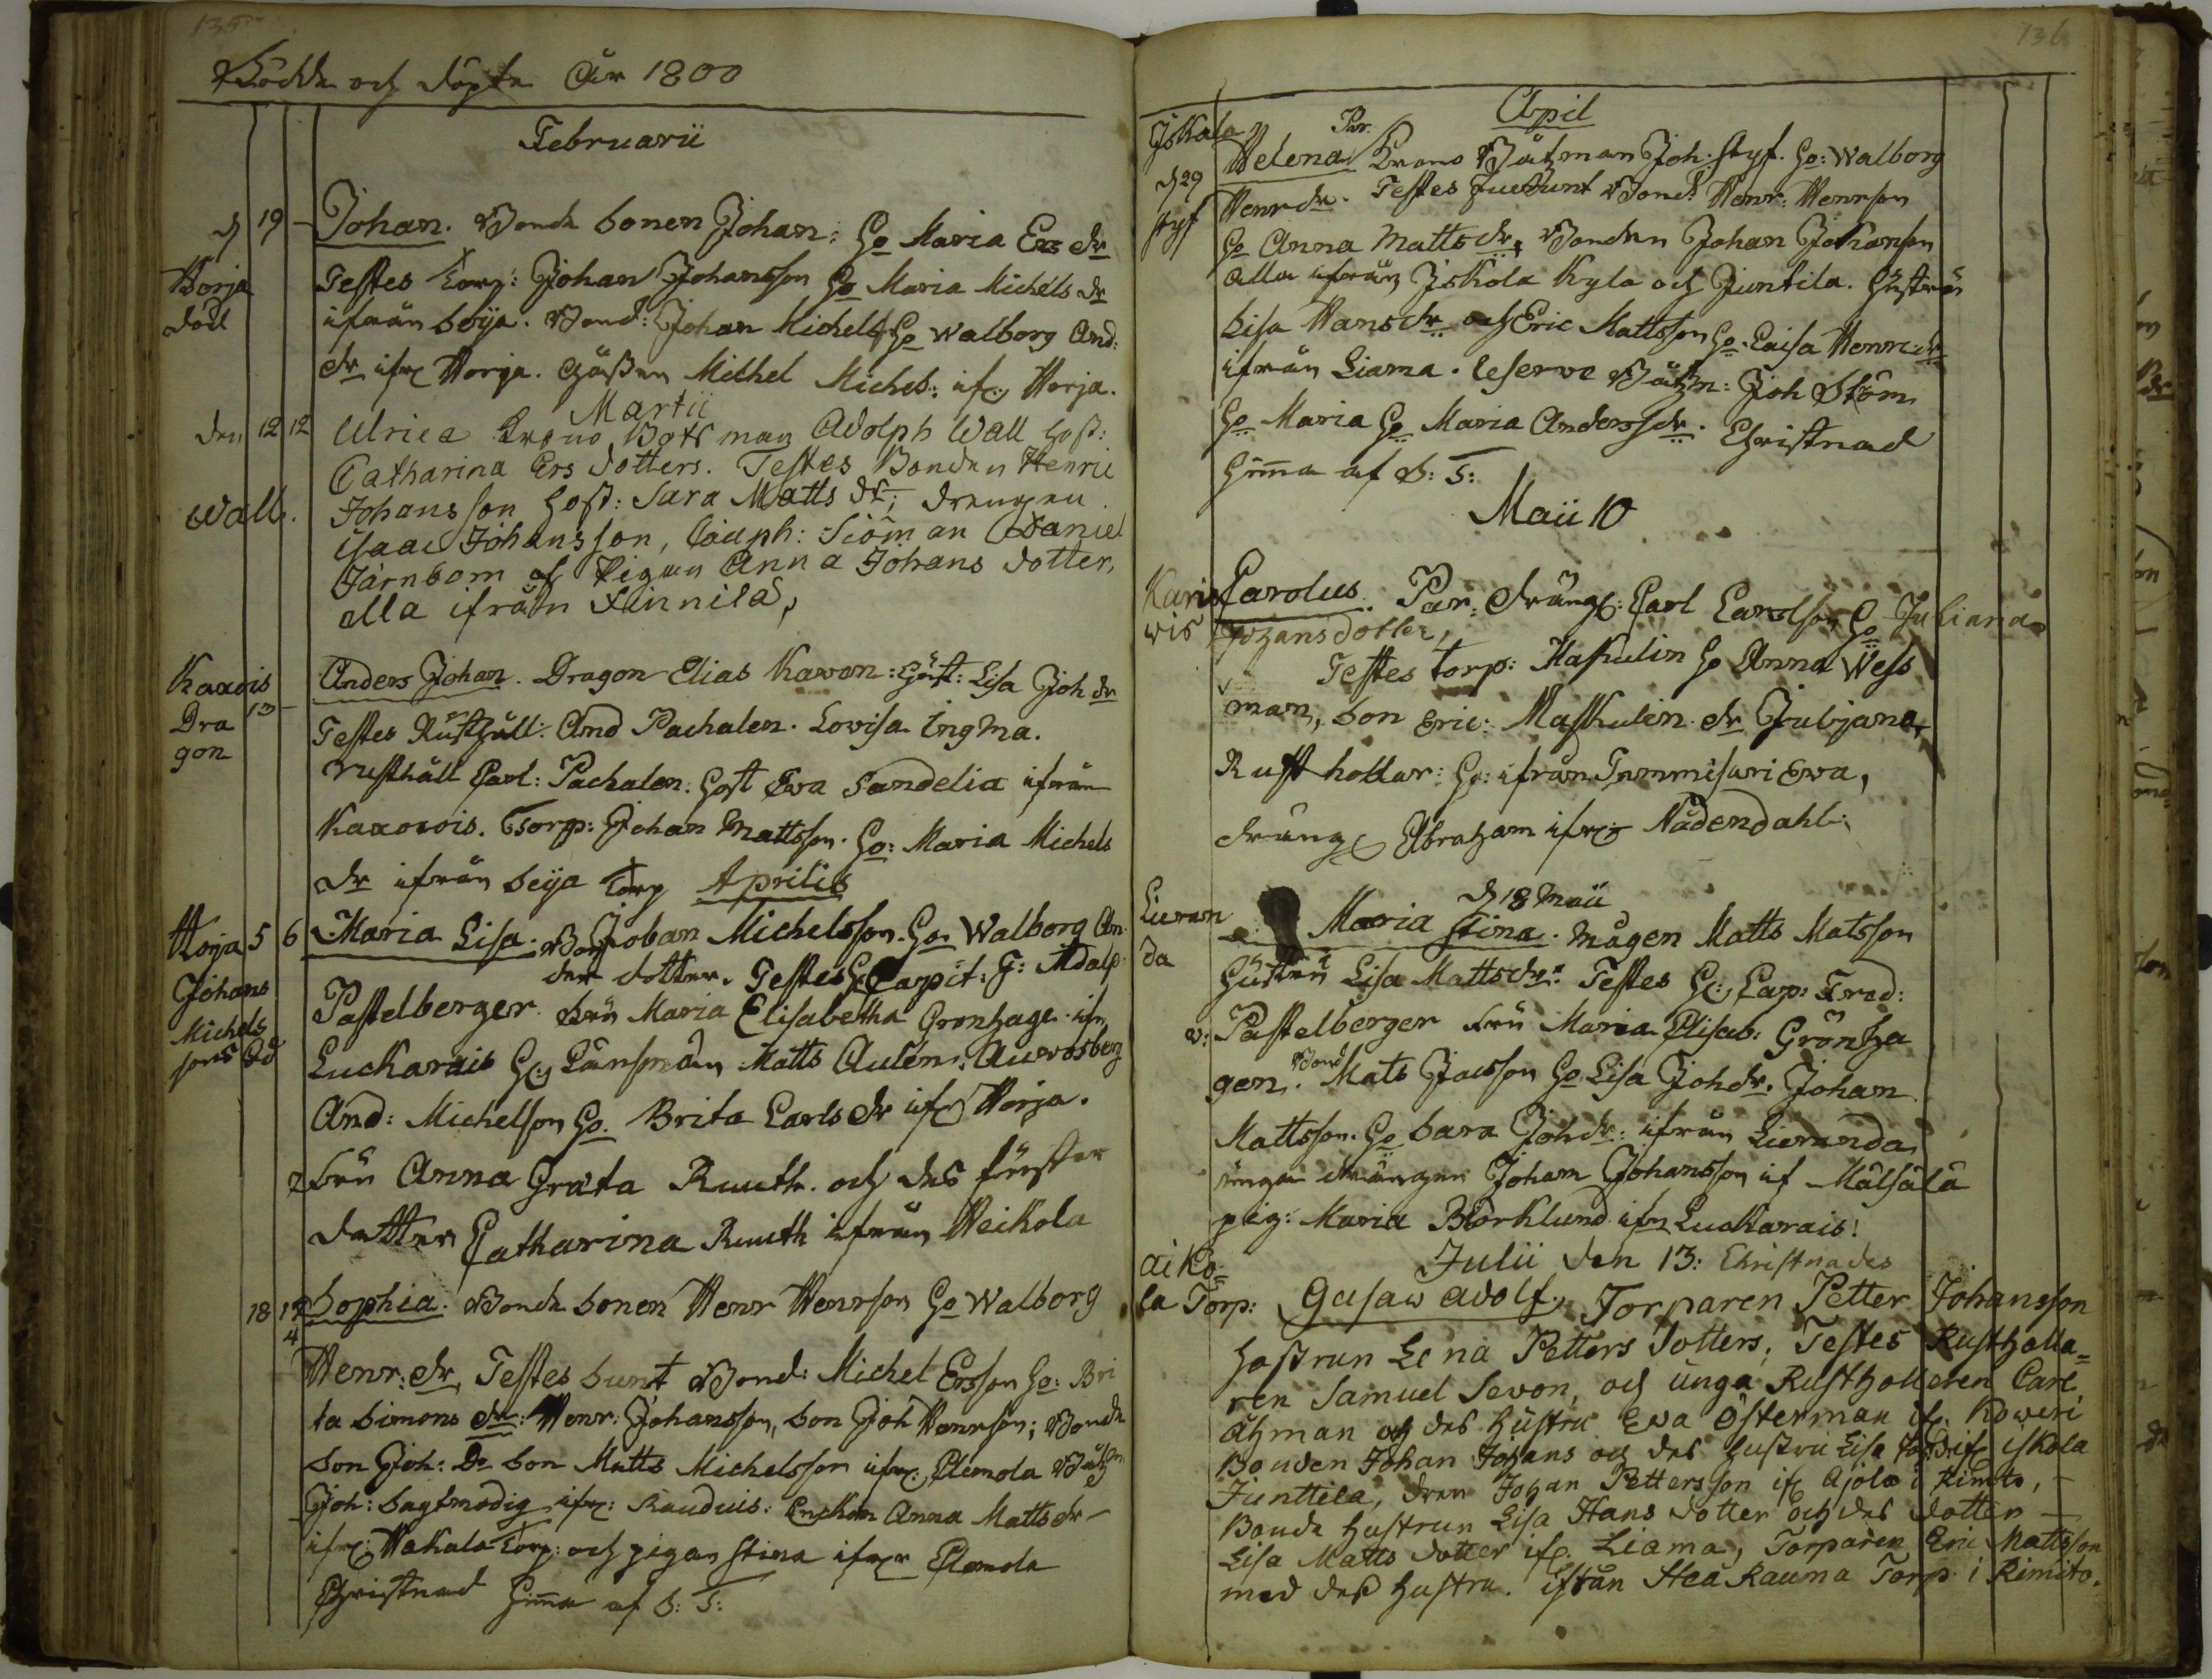 135
Födde och döpte År 1800
Februarii
d 19 Johan. Bonde Sonen Johan: Ho Maria Ers dr
Horja
död
Testes Torp: Johan Johansson Ho Maria Michels dr
ifrån Böija. Bond: Johan Michels: Ho Walborg And:
dr ifr Horja. Michel Michels: ifr: Horja.
Martii
den 12 12 Ulrica Krono Botsman Adolph Wall host:
Catharina Ers dotters. Testes Bonden Henric
Wall. Johansson host: Sara Matts dr; drengen
isaac Johansson, Siöman Daniel
Järnbom och Pigan Anna Johans dotter,
alla ifrån Finnilä,
Kaxois
Dra
gon
13 Anders Johan. Dragon Elias Kavon: Hust: Lisa Joh dr
Testes Rusthåll: And Pachalen. Lovisa Ingma.
rusthåll Carl: Pachalen. Host Ewa Sandelia ifrån
Kaxowis. Torp: Johan Mattsson. Ho: Maria Michels
dr ifrån Beija Torp Aprilis
Horja 5 6 Maria Lisa. Bon Johan Michelsson. Ho. Walborg An
der dotter. Testes H Capit: G: Adalp
Johans
Michels
sons
Pastelberger. Fru Maria Elisabetha Gronhage. ifr
Luckarais H: Länsman Matts Aulen:
And: Michelsson Ho. Brita Carls dr ifr Horja.
Fru Anna Greta Ruuth. och des
dotter Catharina Ruuth ifrån Heikola
18 19
4
Sophia. Bonde Sonen Henr Henrson Ho Walborg
Henr: dr, Testes Sunt Bond: Michel Ersson Ho: Bri
ta Simons dr: Henr: Johansson, Son Joh Henrson; Bonde
Son Joh: Do Son Matts Michelsson ifr: Elomola Båtzm
Joh: Sagtmodig ifr: Rauduis: Enckan Anna Matts dr
ifr: Wakala Torp: och pigan Stina ifrn Elomola
Christnad Hema af S: T:
136
April
Jskala
d 29
Styf
Helena Par. Krono Båtzman Joh: Styf. Ho: Walborg
Henr dr. Testes Fuerunt Bond: Henr: Henrson
Ho Anna Matts dr, Bonden Johan Johansson
alla ifrån Jskola Kyla och Juntila. Hustrun
Lisa Hans dr och Eric Mattsson Ho. Caisa Henr: dr
ifrån Liama. Reserve Båtzm: Joh Ström
Ho Maria Ho Maria Anderss dr. Christnad
Hema af S: T:
Maii 10
Karis
wis
Carolus. Par: dräng: Carl Carolsson Ho Juliana
Johansdotter,
Testes torp: Maskulin Ho Anna Wess
man, Son Eric: Maskulin dr Jubjana,
Rust hollar: Ho: ifrån Tammisari Ewa,
dräng Abraham ifrn Nådendahl:
d 18 Maii
Lieran
da
Maria Stina. Mågen Matts Matsson
Hustru Lisa Matts dr: Testes H: Cap: Fred:
v: Pastelberger Fru Maria Elisab: Grönha
gen. Bond Mats Jacsson Ho Lisa Joh dr. Johan
Mattsson. Ho Sara Joh dr: ifrån Lieranda
unga drängen Johan Johansson if Mälsälä
pig: Maria Björklund ifrn Luckarais!
Julii den 13: Christnades
aiko=
la Torp: Gusaw Adolf, Torparen Petter Johansson
hostrun Lena Petters dotters; Testes Rustholla=
ren Samuel Sevon, och unga Rustholleren Carl
Åhman och des hustru Eva Österman if: Koweri
Bonden Johan Johans och des hustru Lisa if: iskola
Junttila, dren Johan Pettersson if: Ajola i Rimito,
Bonde hustrun Lisa Hans dotter och des dotter
Lisa Matts dotter if: Liama, Torparen Eric Mattsson
med des hustru. ifrån Hea Rauna Torp i Rimito.